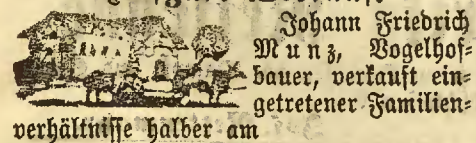 Johann Friedrich
Munz, Vogelhof=
bauer, verkauft ein=
getretener Familien=
verhältnisse halber am